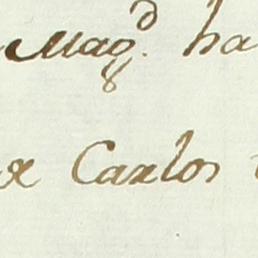 Mag.d ha
Carlos